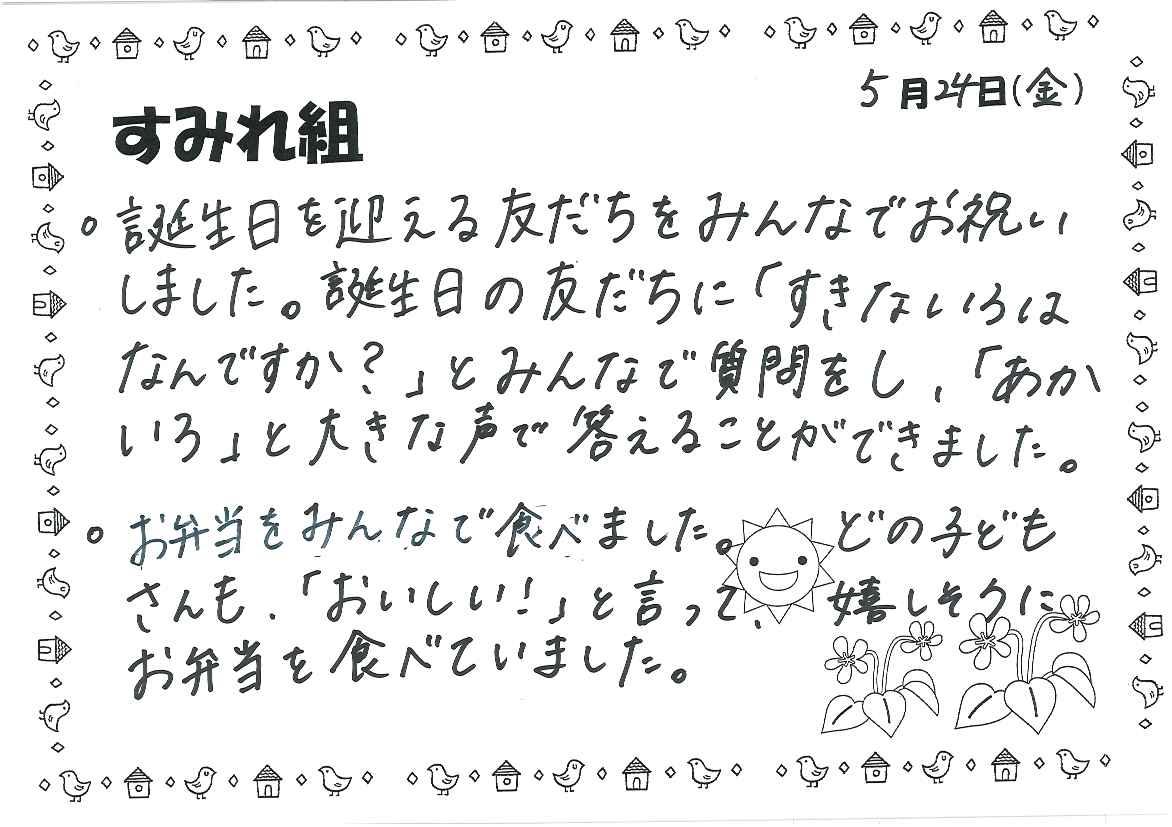 5月24日(金)
すみれ組
。誕生日を迎える友だちをみんなでお祝い
しました。誕生日の友だちに「すきないろは
なんですか?」とみんなで質問をし、「あか
いろ」と大きな声で答えることができました。
。お弁当をみんなで食べました。どの子ども
さんも、「おいしい!」と言って、嬉しそうに
お弁当を食べていました。